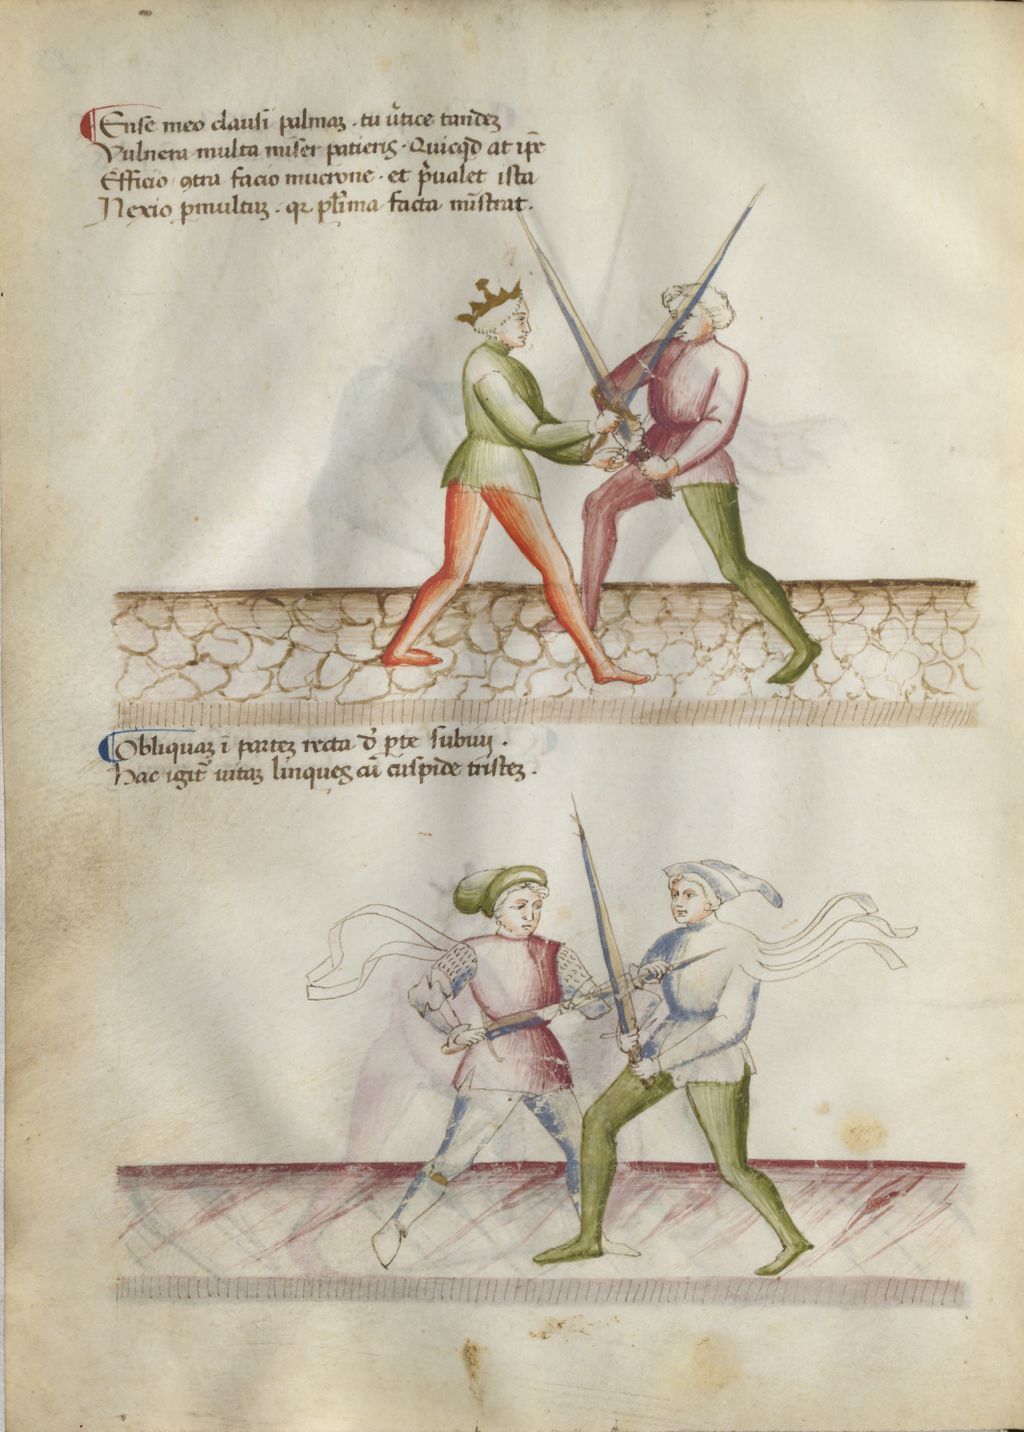 Ense meo clausi palmaʒ . tu ũtice tandeʒ
Vulnera multa miser patieris . Quicq̃d at ip̃e
Efficio ꝯtra facio mucrone . et p̃ualet ista
Nexio pmultuʒ . qꝛ pl̃ima facta mĩstrat .
Obliquaʒ ĩ parteʒ recta d̉ pte subiuj .
Hac igit᷑ uitaʒ linques cũ cuspide tristeʒ .